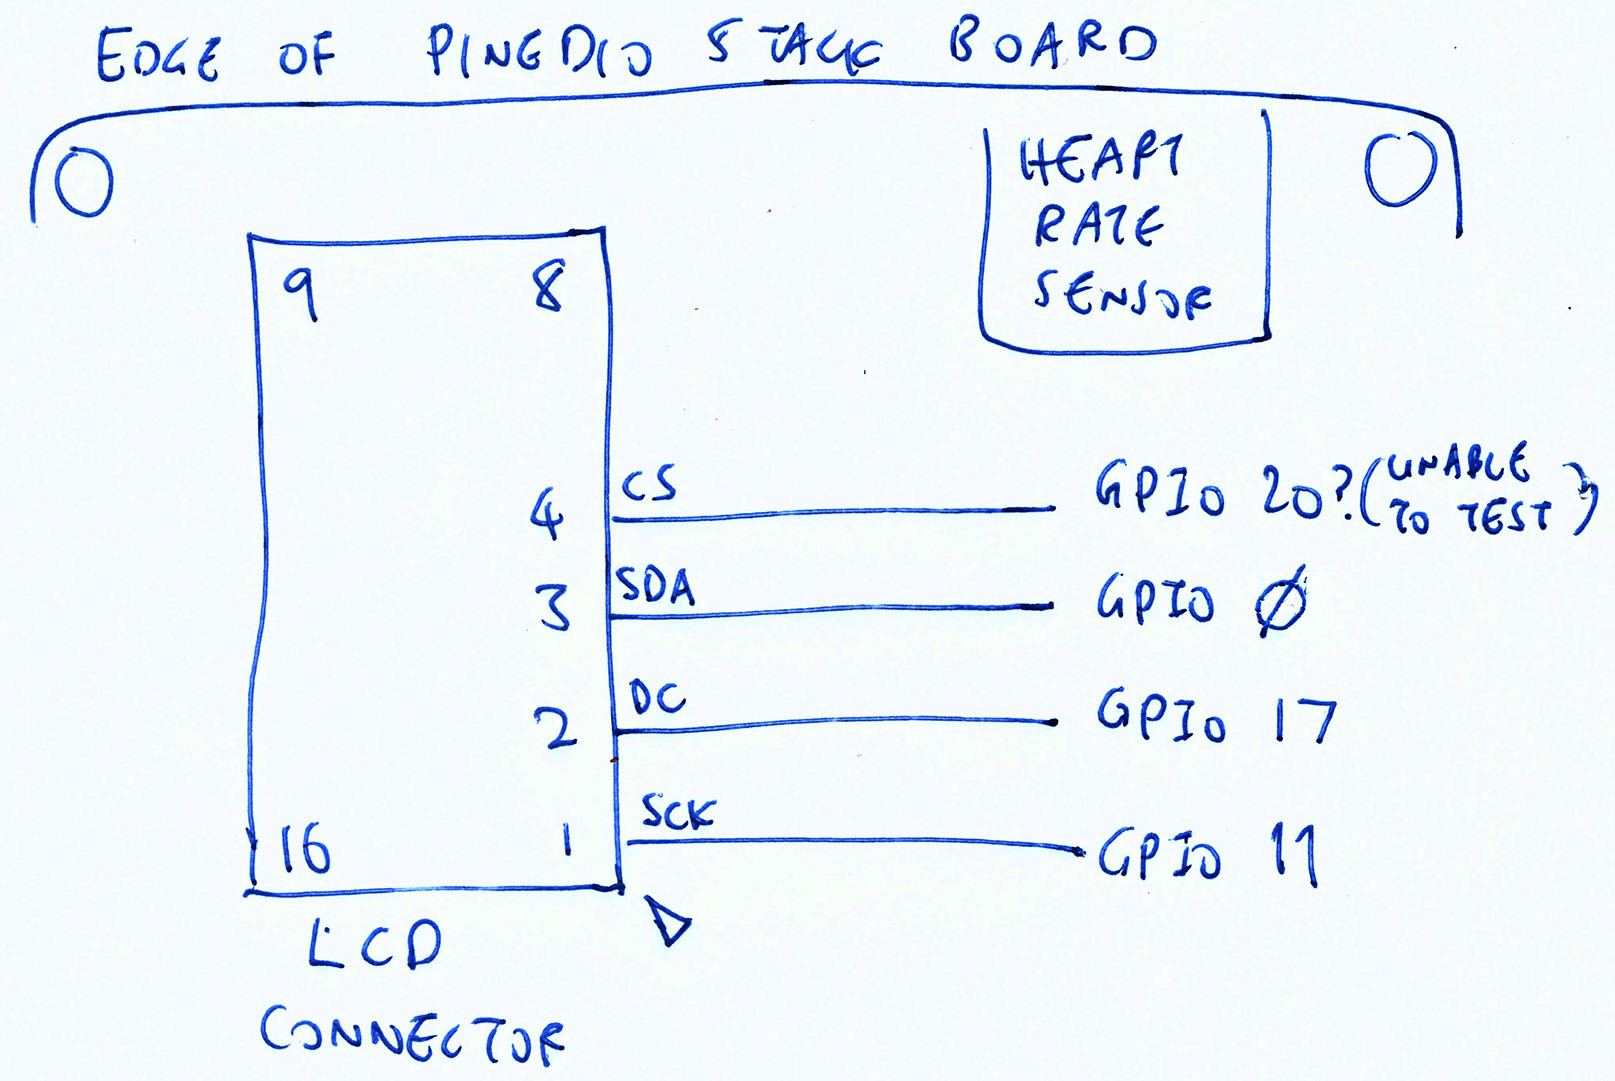 EDGE OF PINEDIO STACK BOARD
HEART
RATE
SENSOR
9 8
4 CS GPIO 20? (UNABLE TO TEST)
3 SDA GPIO Ø
2 DC GPIO 17
16 1 SCK GPIO 11
LCD
CONNECTOR